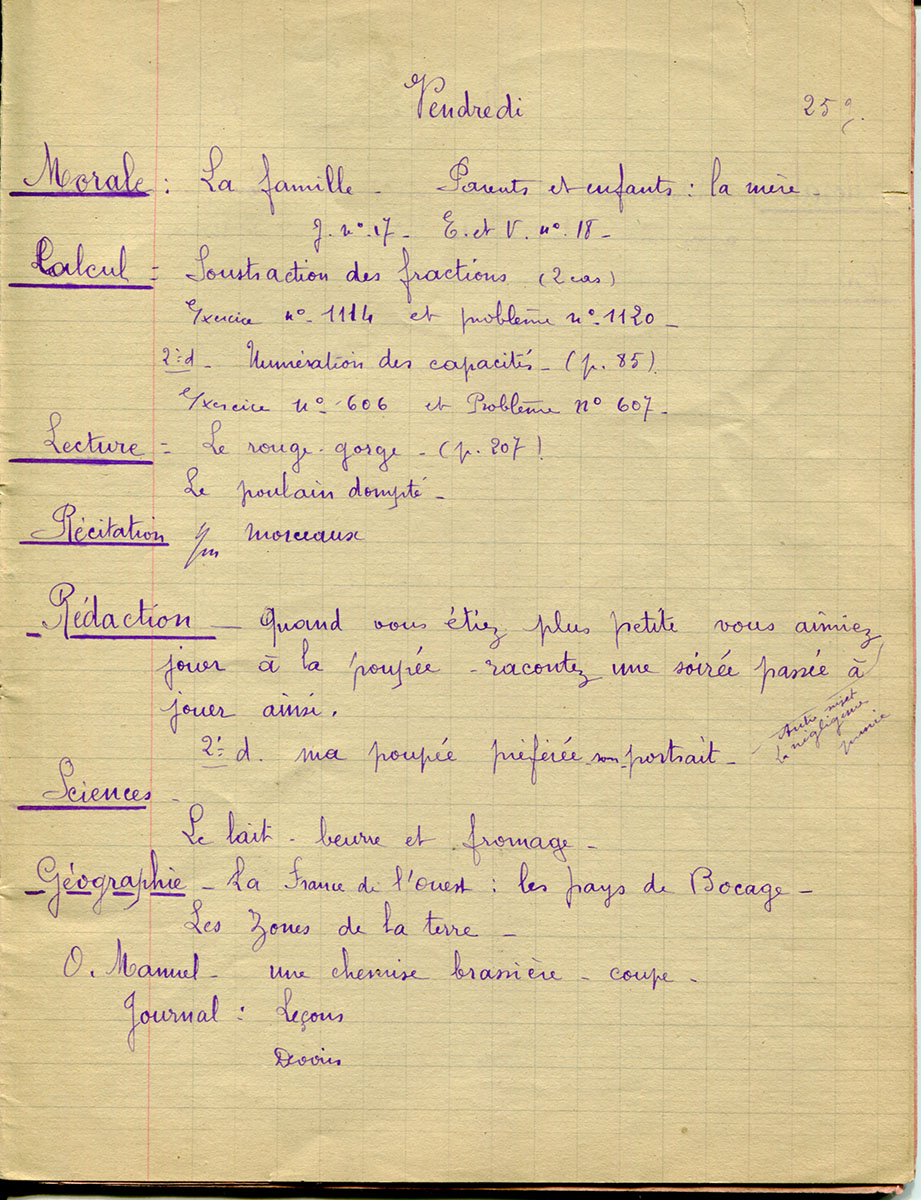 Vendredi 25
Morale : La famille - Parents et enfants : la mère -
J. n° 17 - E. et V. n° 18 -
Calcul = Soustraction des fractions (2 cas)
Exercice n° 1114 et problème n° 1120 -
2e d - Numération des capacités - (p. 85)
Exercice n° 606 et Problème n° 607 -
Lecture = Le rouge-gorge - (p. 207)
Le poulain dompté -
Récitation morceaux
- Rédaction - Quand vous étiez plus petite vous aimiez
jouer à la poupée - racontez une soirée passée à
jouer ainsi.
2e d. ma poupée préférée son portrait -
Autre sujet
la négligence
punie
Sciences -
Le lait - beurre et fromage -
- Géographie - La France de l'Ouest : les pays de Bocage -
Les Zones de la terre -
O. Manuel - une chemise brassière - coupe -
Journal : Leçons
Devoirs